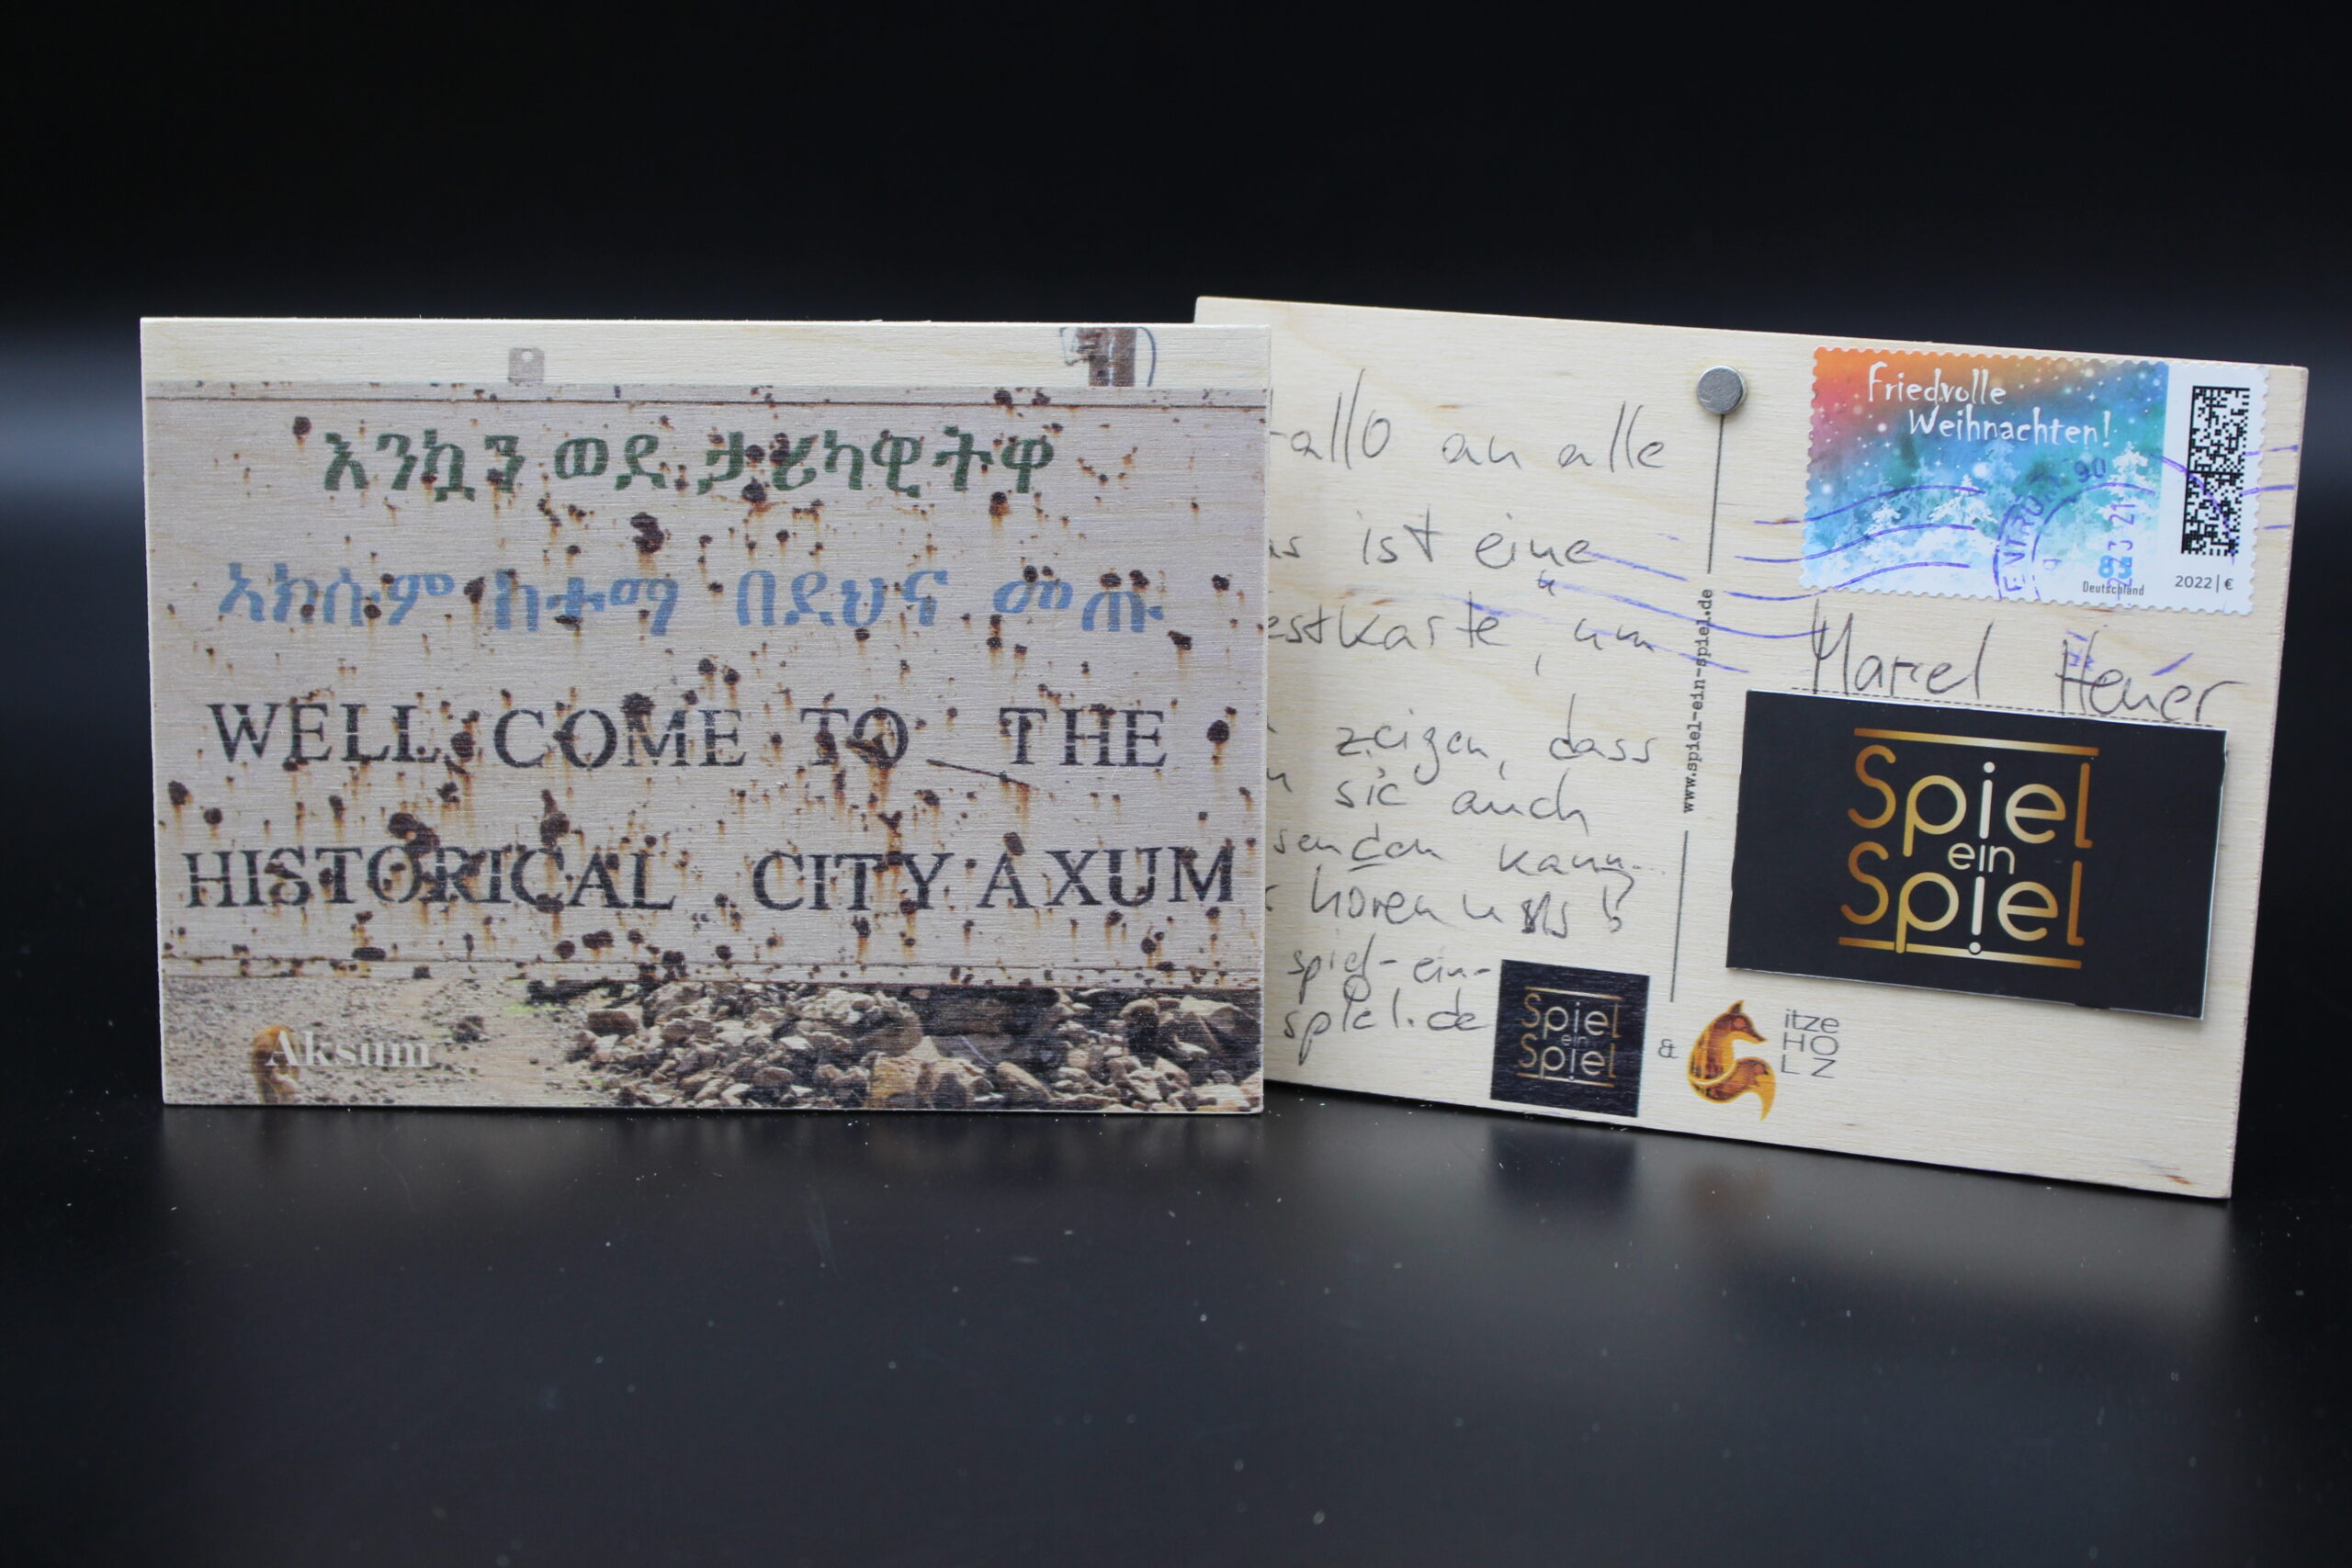 እንኳን ወደ ታሪካዊትዋ
አክሱም ከተማ በደህና መጡ
WELL COME TO THE
HISTORICAL CITY AXUM
Aksum
allo an alle
ist eine
estkarte, um
zeigen, dass
sie auch
senden kann.
hören uns!
spiel-ein-
spiel.de
www.spiel-ein-spiel.de
Spiel
ein
Spiel
&
itze
HO
LZ
Friedvolle
Weihnachten!
Deutschland
2022 | €
Marcel Heuer
Spiel
ein
Spiel